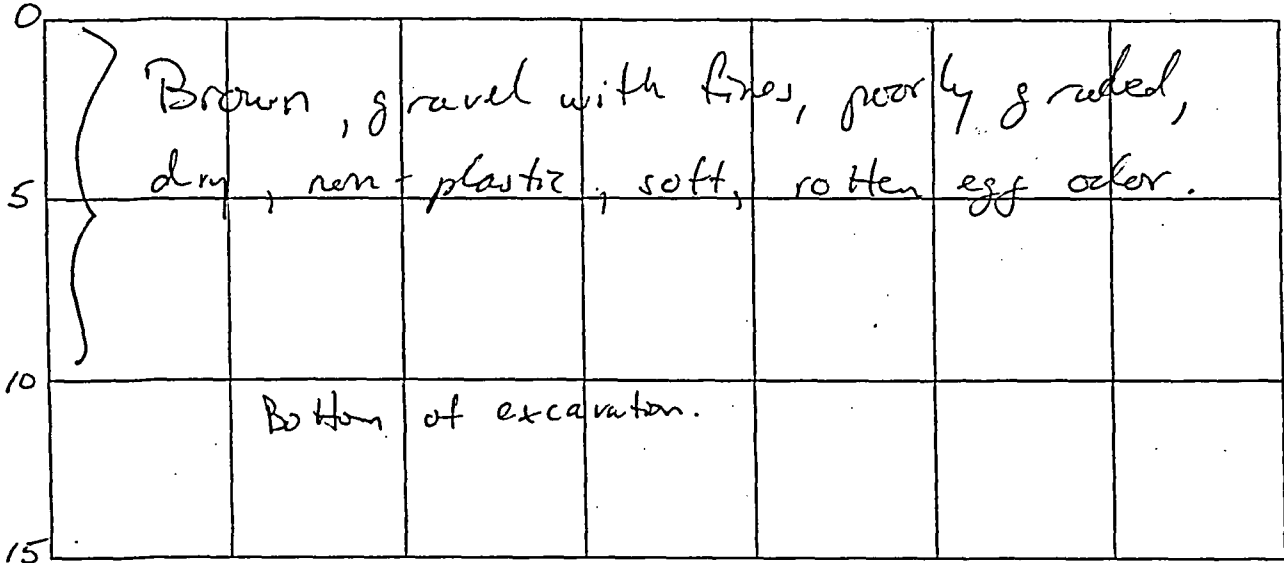 0
Brown, gravel with fines, poorly graded,
dry, non-plastic, soft, rotten egg odor.
5
10
Bottom of excavation.
15